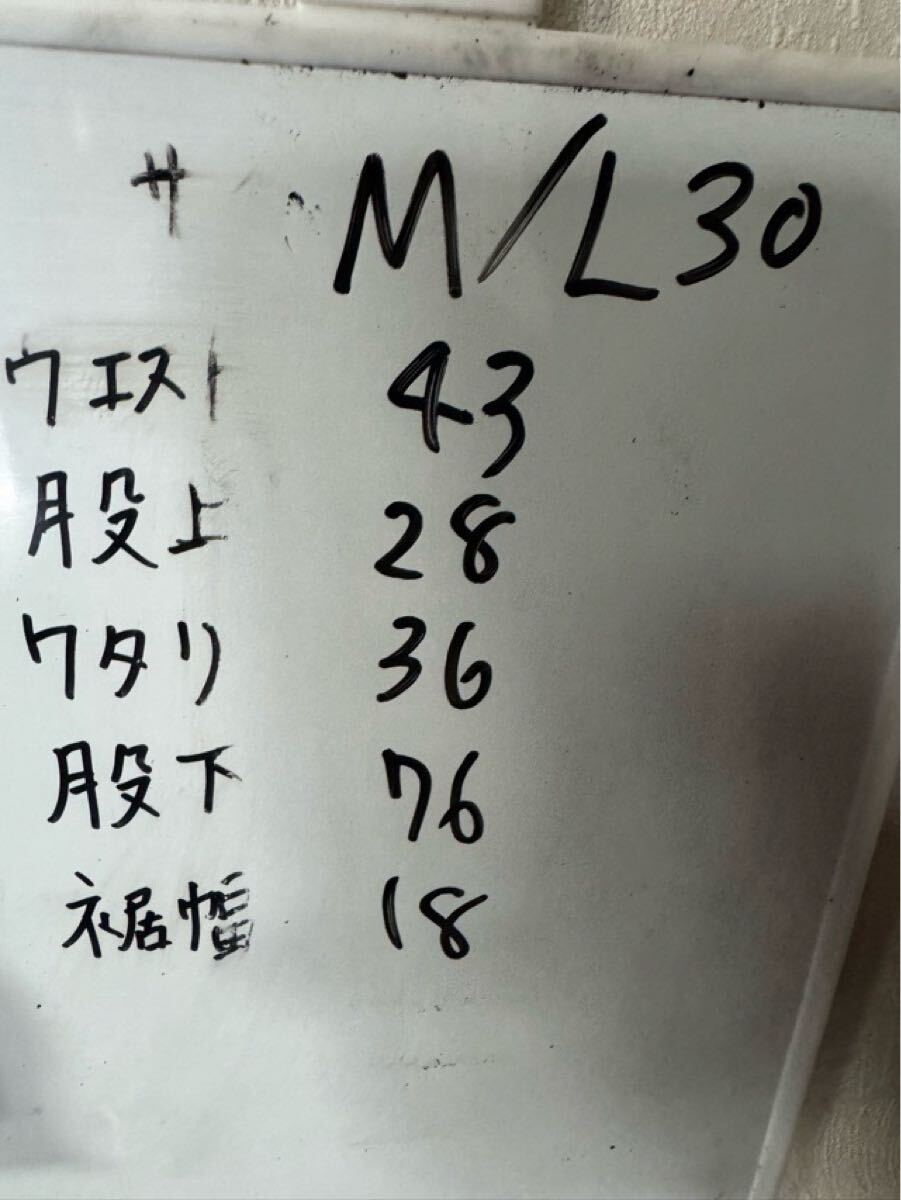 サ M/L30
ウエスト 43
股上 28
ワタリ 36
股下 76
裾幅 18